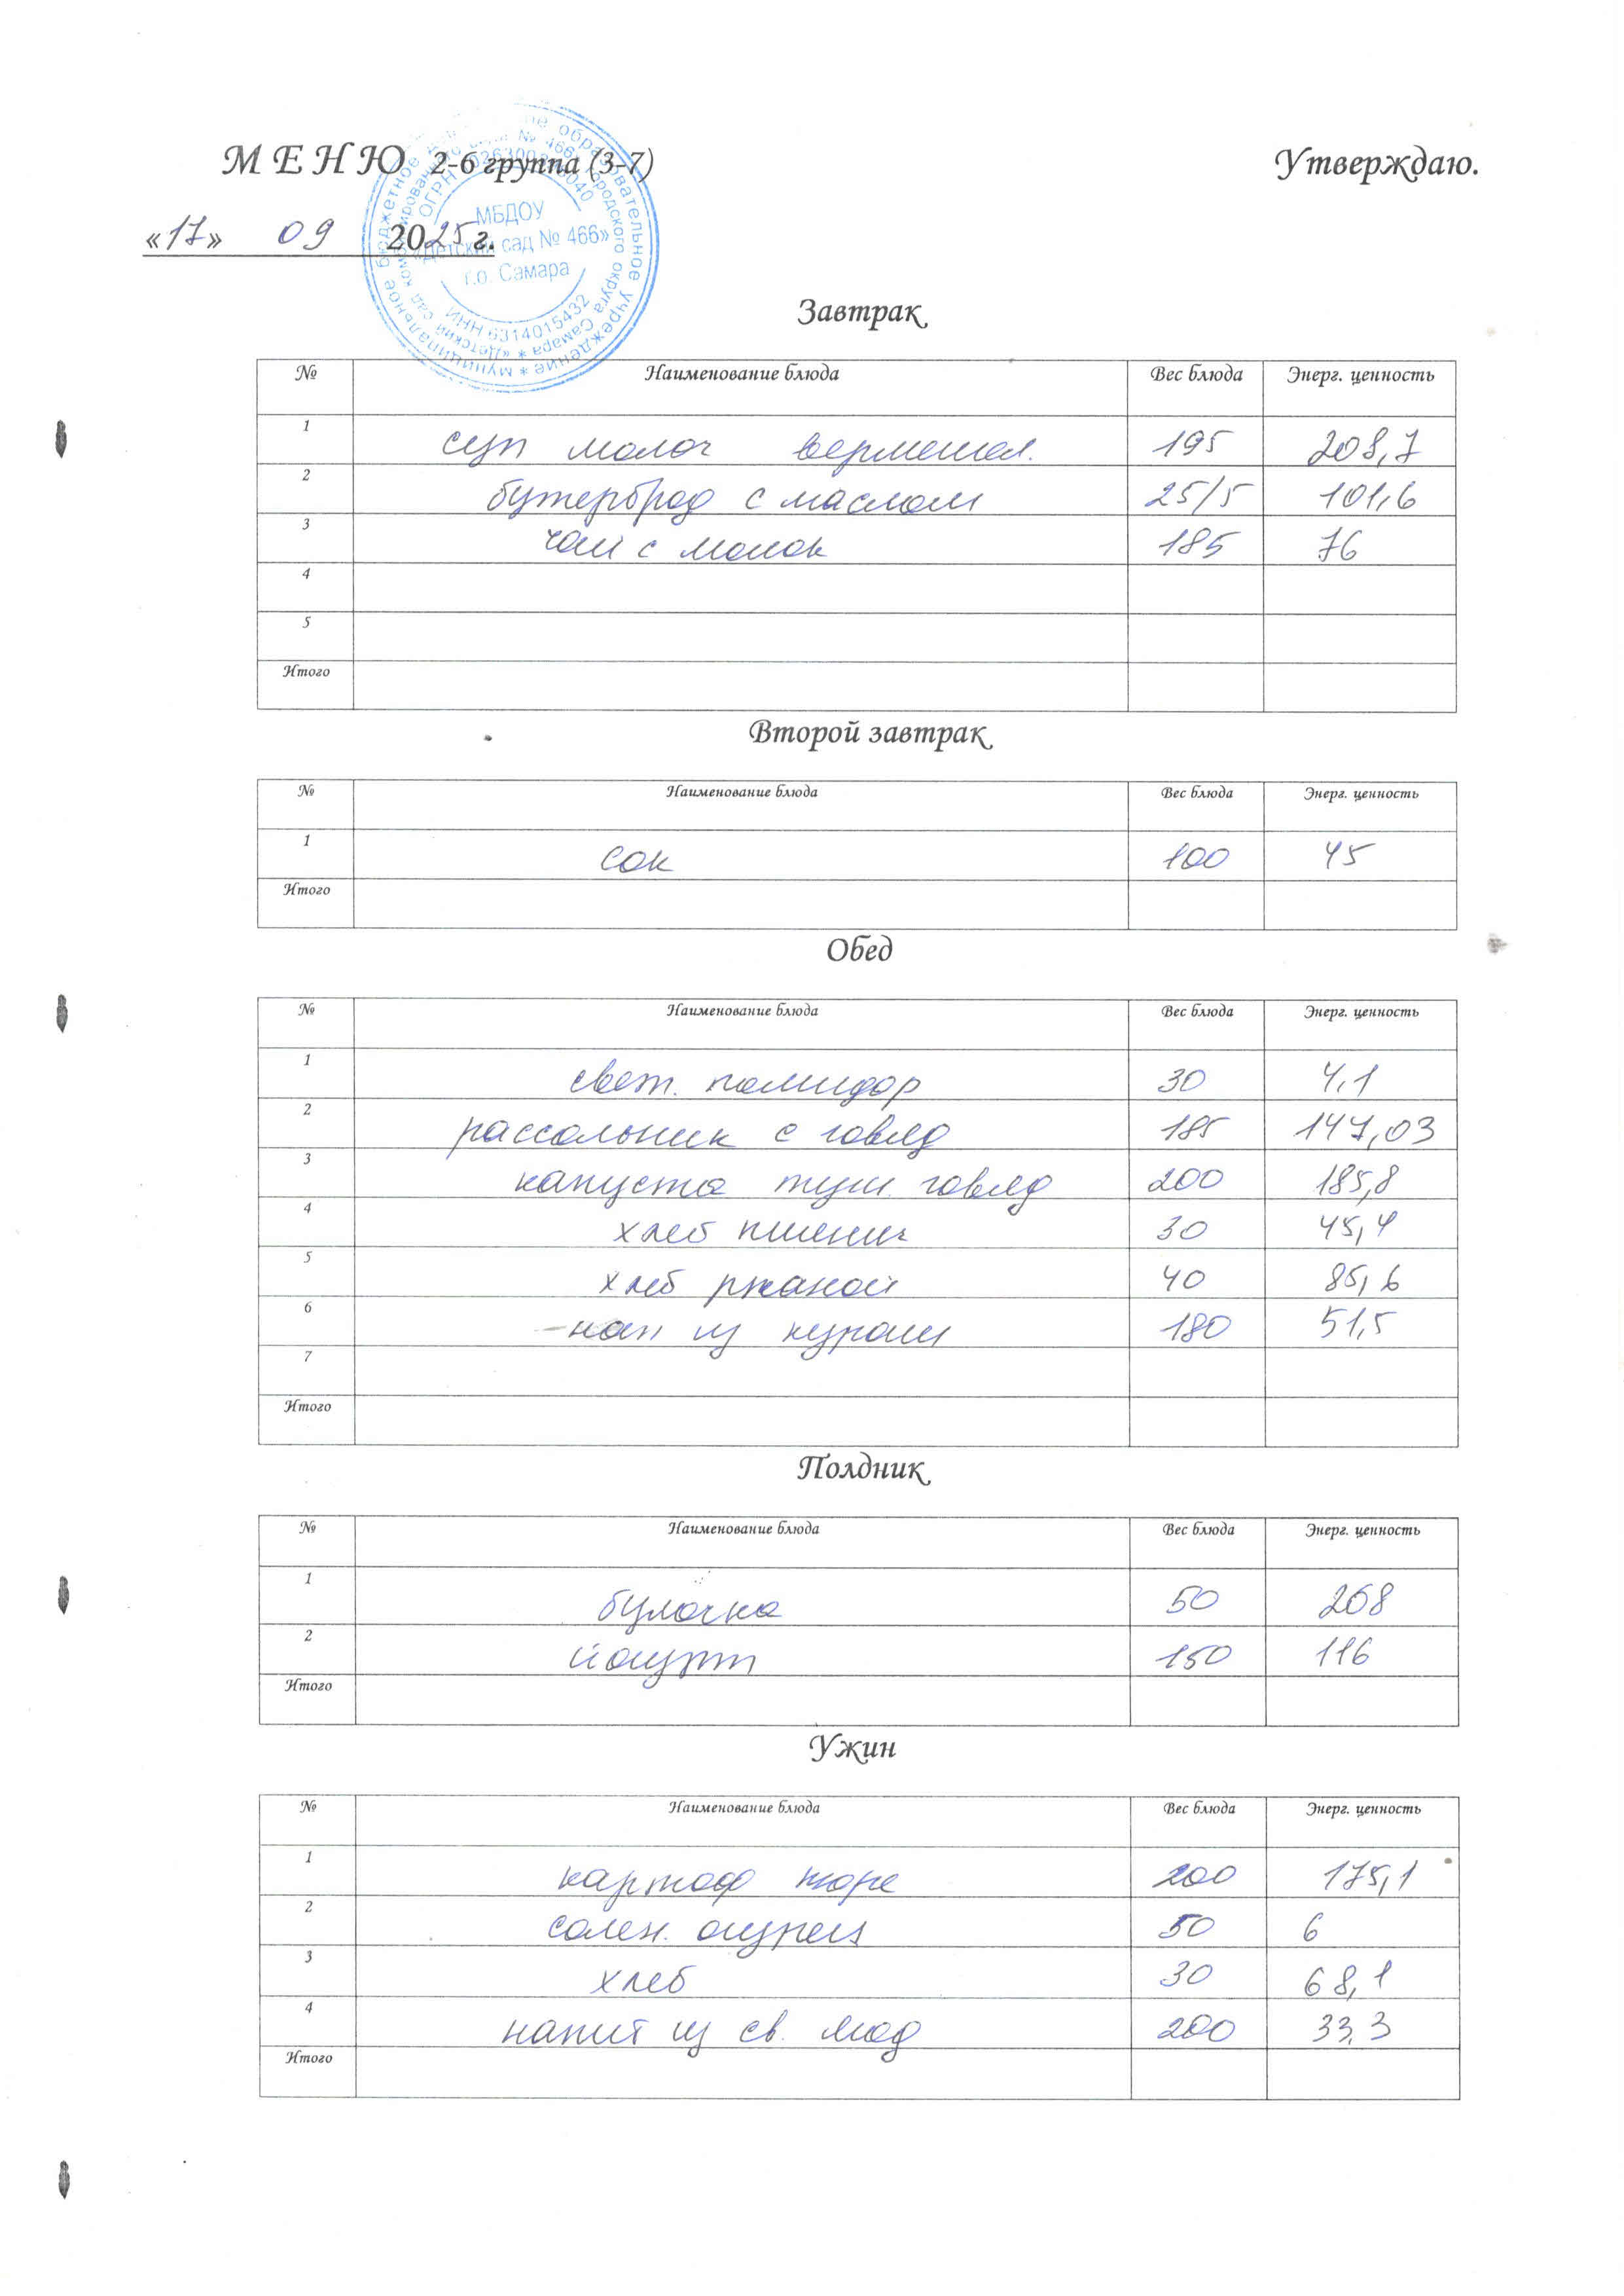 М Е Н Ю 2-6 группа (3-7) Утверждаю.
«17» 09 2025 г.
МБДОУ
«Детский сад № 466»
г.о. Самара
ИНН 6314015432
Завтрак
№ Наименование блюда Вес блюда Энерг. ценность
1 суп молоч вермешел. 195 208,7
2 бутерброд с маслом 25/5 101,6
3 чай с молок 185 76
4
5
Итого
Второй завтрак
№ Наименование блюда Вес блюда Энерг. ценность
1 сок 100 45
Итого
Обед
№ Наименование блюда Вес блюда Энерг. ценность
1 свеж. помидор 30 4,1
2 рассольник с говяд 185 147,03
3 капуста туш. говяд 200 185,8
4 хлеб пшенич 30 45,4
5 хлеб ржаной 40 85,6
6 нап из кураги 180 51,5
7
Итого
Полдник
№ Наименование блюда Вес блюда Энерг. ценность
1 булочка 50 268
2 йогурт 150 116
Итого
Ужин
№ Наименование блюда Вес блюда Энерг. ценность
1 картоф пюре 200 175,1
2 солен. огурец 50 6
3 хлеб 30 68,1
4 напит из св. яод 200 33,3
Итого